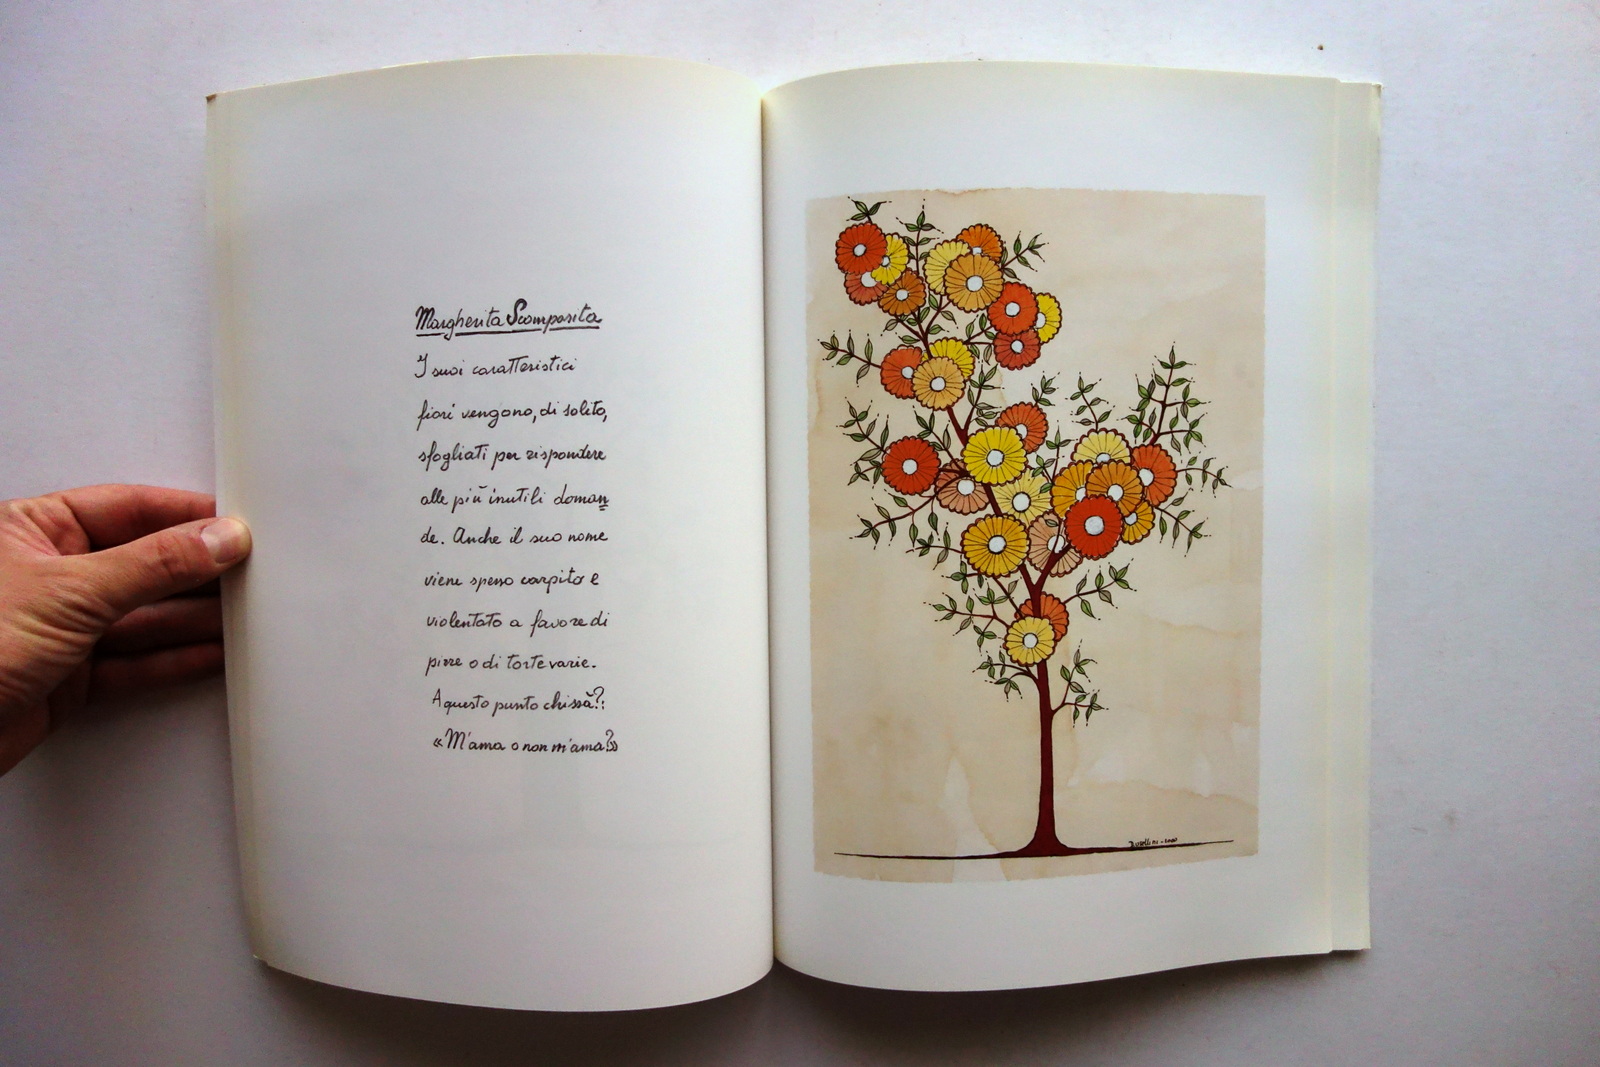 Margherita Scomposita
I suoi caratteristici
fiori vengono, di solito,
sfogliati per rispondere
alle più inutili doman=
de. Anche il suo nome
viene spesso carpito e
violentato a favore di
pizze o di torte varie.
A questo punto chissà?:
«M'ama o non m'ama?»